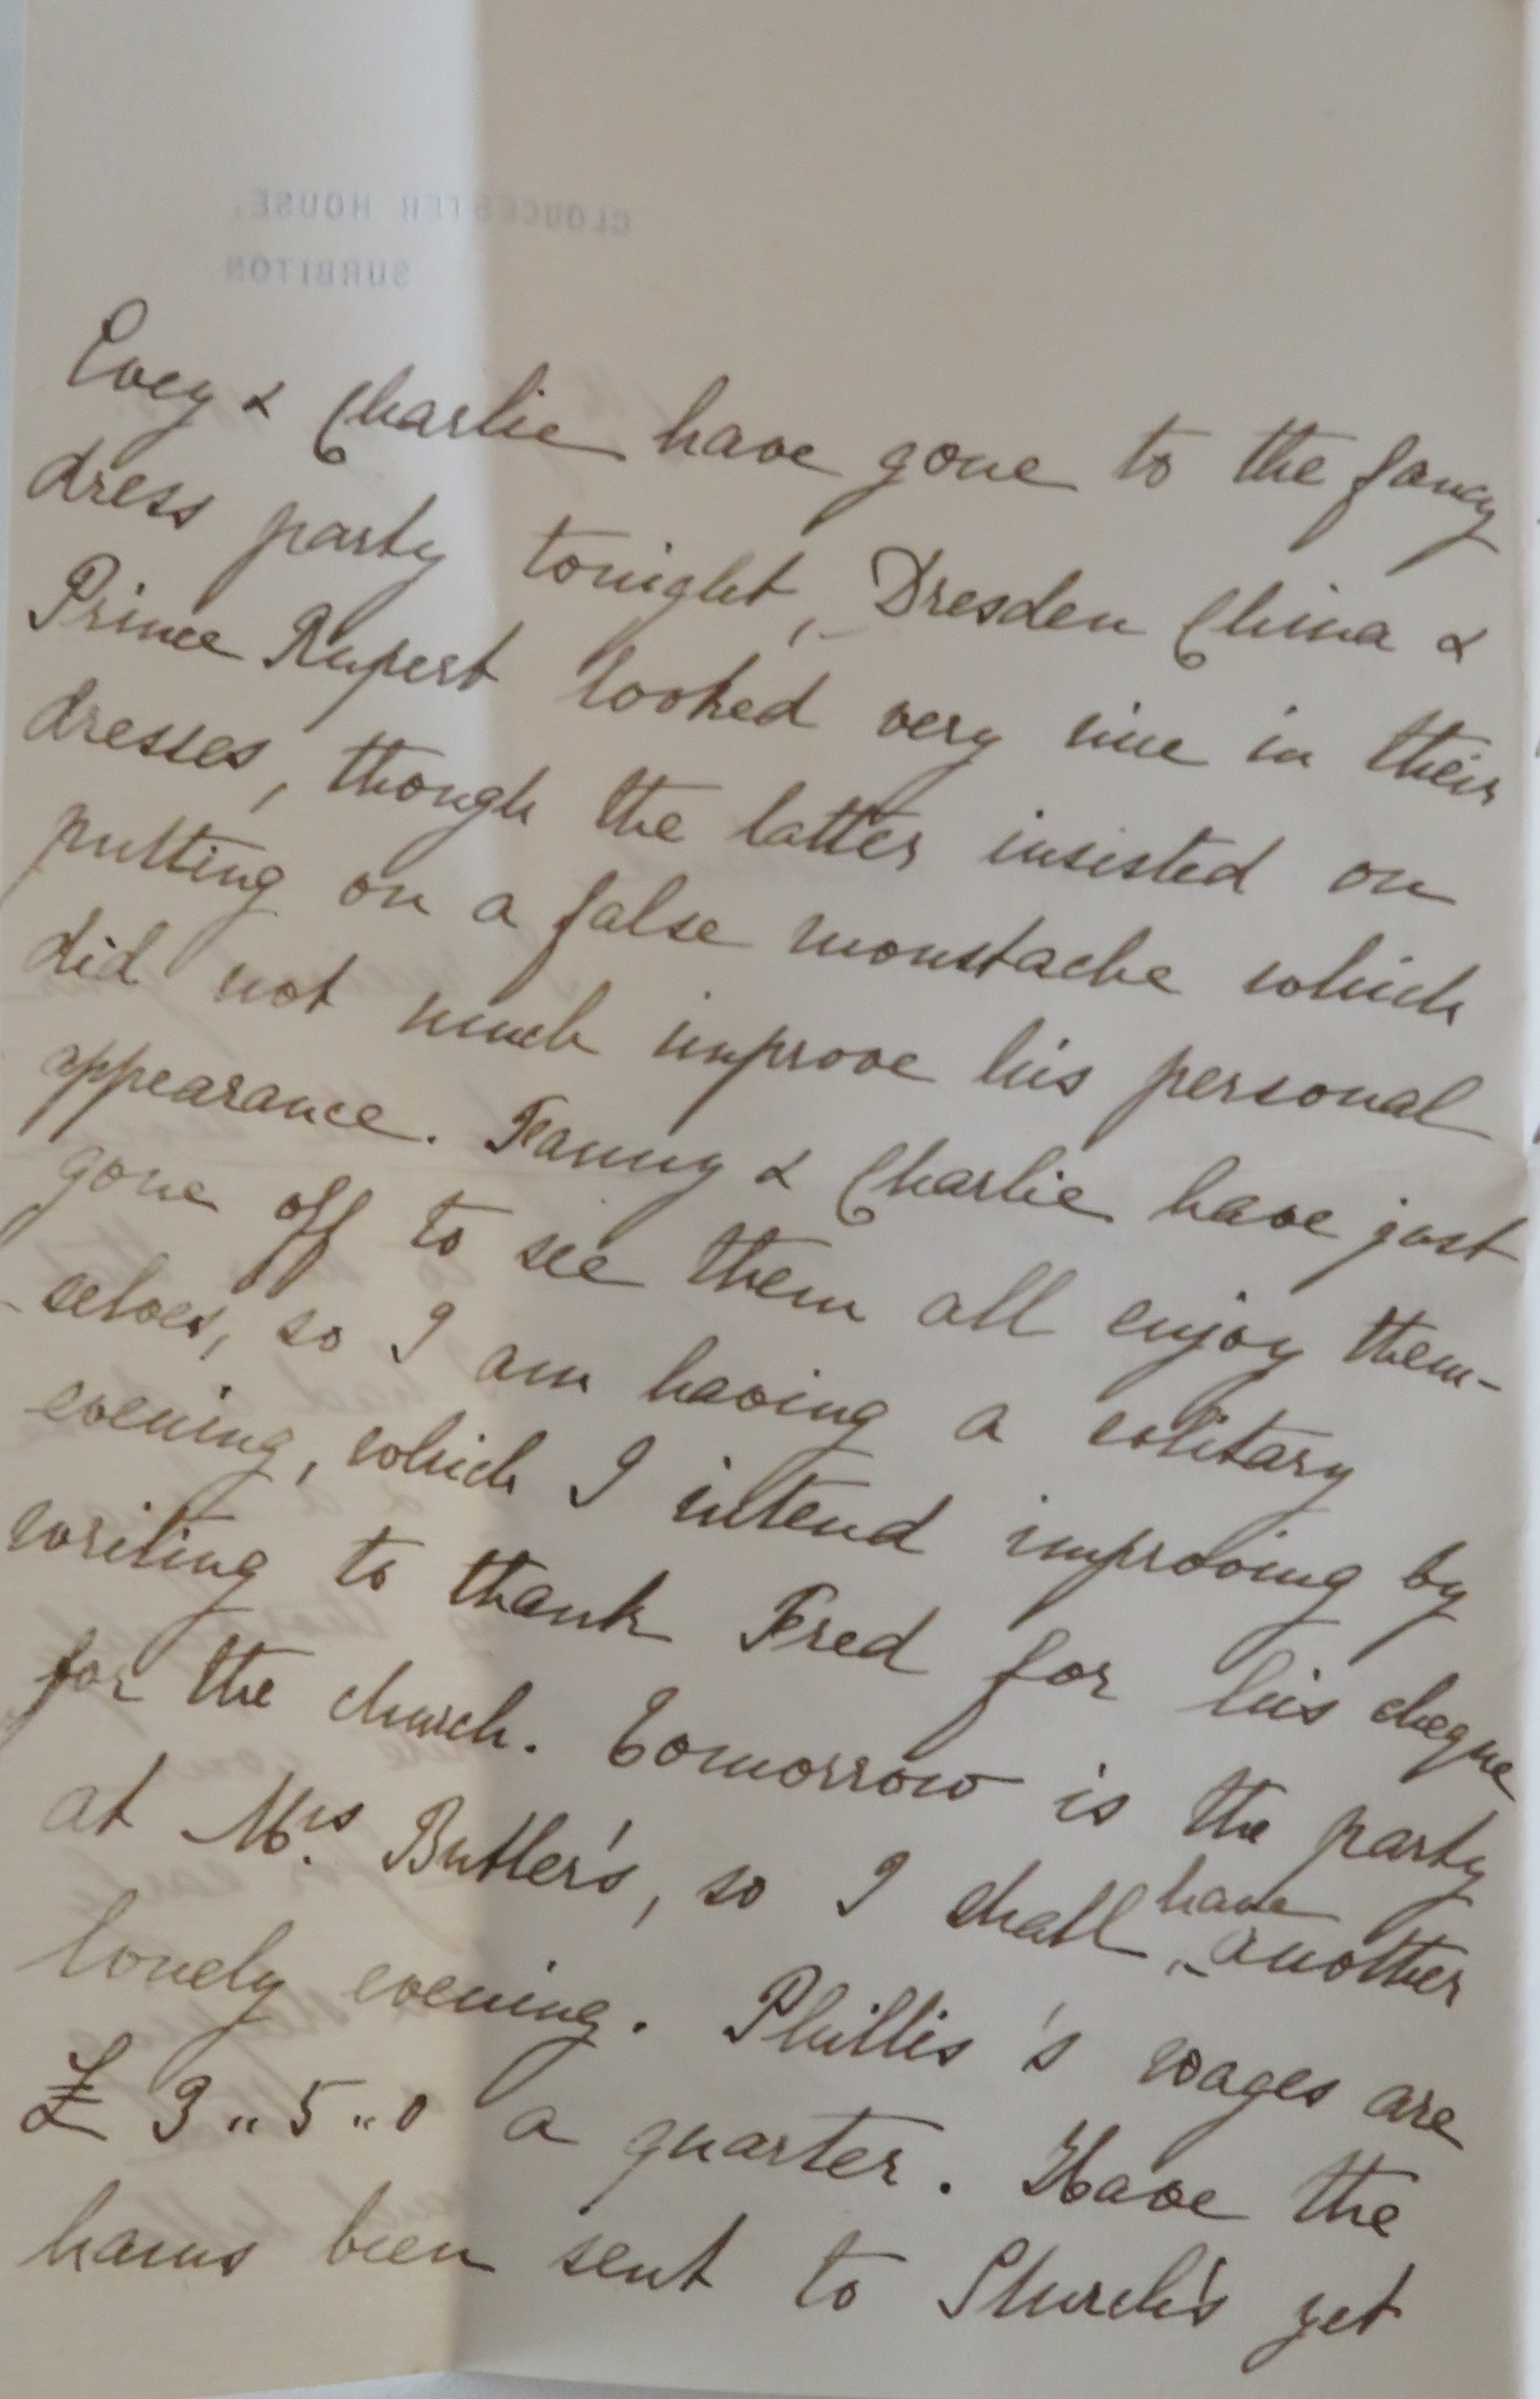 GLOUCESTER HOUSE,
SURBITON
Evey & Charlie have gone to the fancy
dress party tonight, Dresden China &
Prince Rupert looked very nice in their
dresses, though the latter insisted on
putting on a false moustache which
did not much improve his personal
appearance. Fanny & Charlie have just
gone off to see them all enjoy them-
-selves, so I am having a solitary
evening, which I intend improving by
writing to thank Fred for his cheque
for the church. Tomorrow is the party
at Mrs Butler's, so I shall have another
lonely evening. Phillis's wages are
£ 3 „ 5 „ 0 a quarter. Have the
hams been sent to Sturch's yet